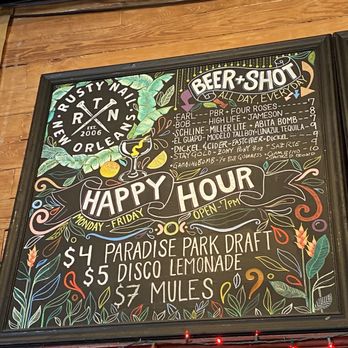 RUSTY NAIL
RTN
EST.
2006
NEW ORLEANS
BEER+SHOT
ALL DAY, EVERYDAY
EARL - PBR + FOUR ROSES - 7
BOB - HIGH LIFE + JAMESON 8
SCHLINE - MILLER LITE + ABITA BOMB - 7
EL GUAPO - MODELO TALLBOY + LUNAZUL TEQUILA - 9
PICKEL & CIDER - EASTCIDER + DICKEL
HAPPY HOUR
MONDAY-FRIDAY
OPEN-7PM
$4 PARADISE PARK DRAFT
$5 DISCO LEMONADE
$7 MULES